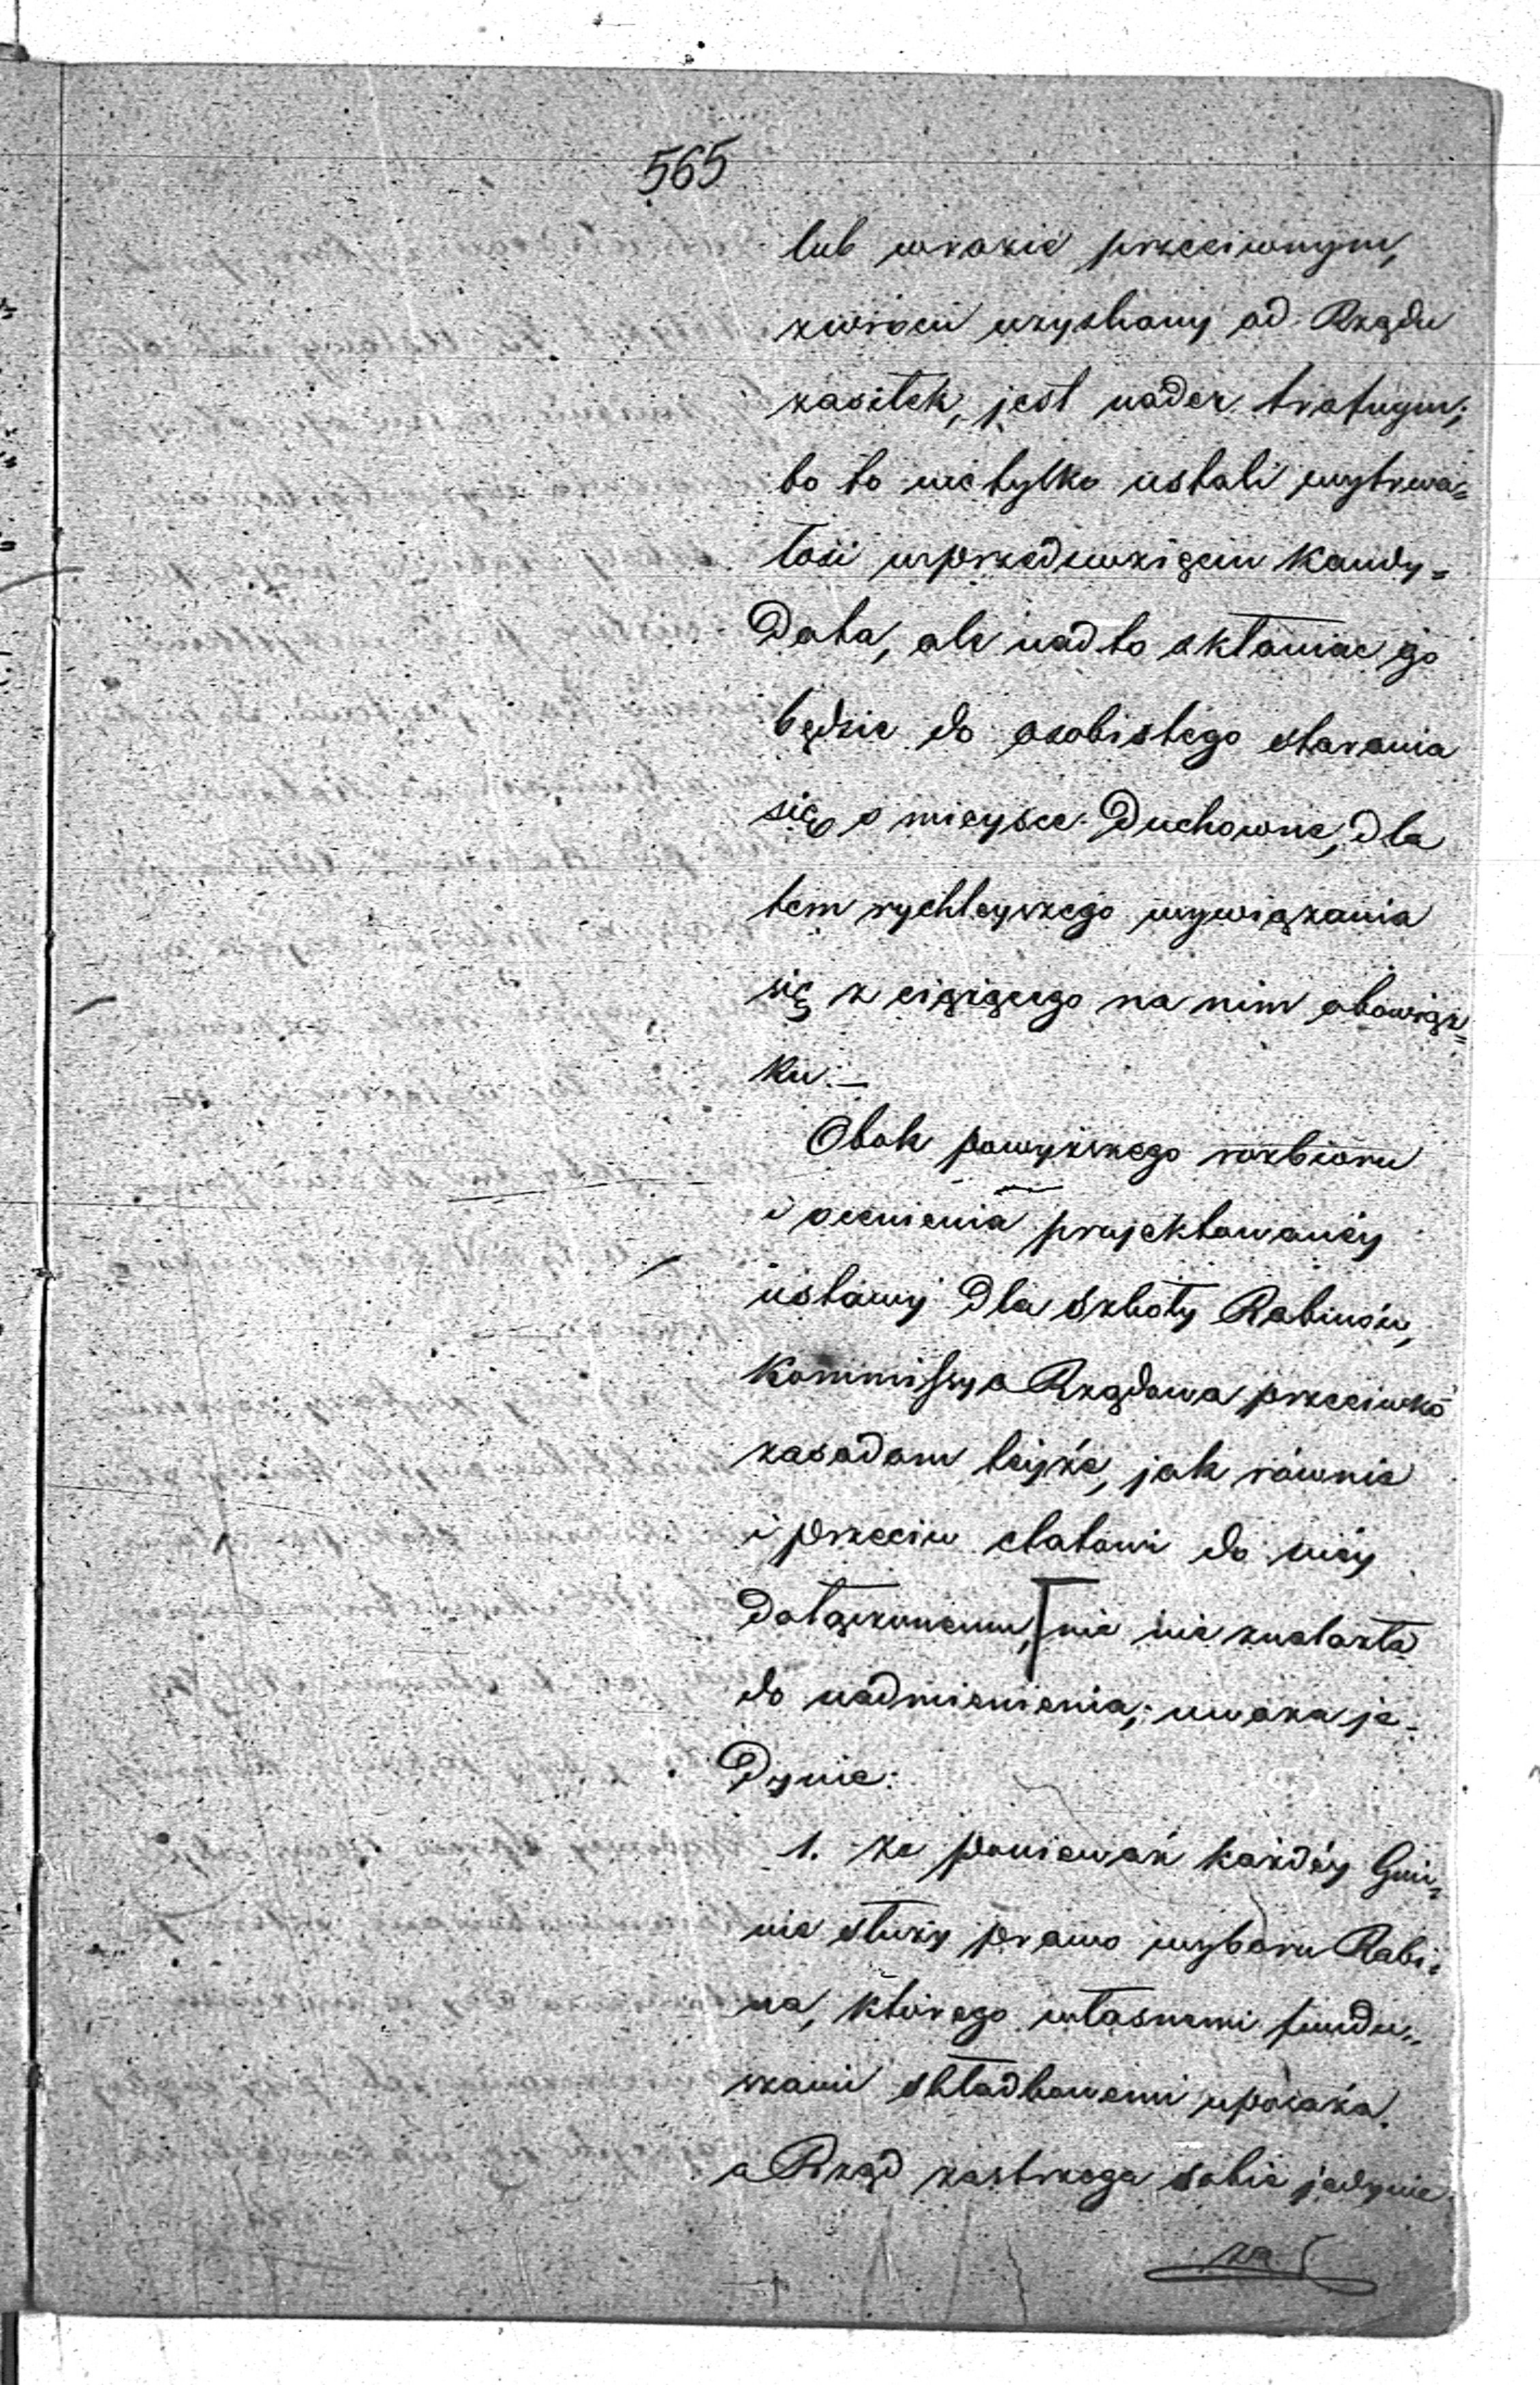 565
lub w razie przeciwnym,
zwrócić uzyskany od Rządu
zasiłek, jest nader trafnym;
bo to nie tylko ustali wytrwa=
łość w przedsięwzięciu Kandy=
data, ale nadto skłaniać go
będzie do osobistego starania
się o mieysce Duchowne, dla
tem rychleyszego wywiązania
się z ciążącego na nim obowiąz=
ku.—
Obok powyższego rozbioru
i ocenienia projektowanéy
ustawy dla szkoły Rabinów,
Kommissya Rządowa przeciwko
zasadom teyże, jak równie
i przeciw etatowi do niéy
dołączonemu, nic nie znalazła
do nadmienienia; uważa je-
dynie:
1. że ponieważ każdéy Gmi=
nie służy prawo wyboru Rabi=
na, którego własnemi fundu=
szami składkowemi uposaża,
a Rząd zastrzega sobie jedynie
za